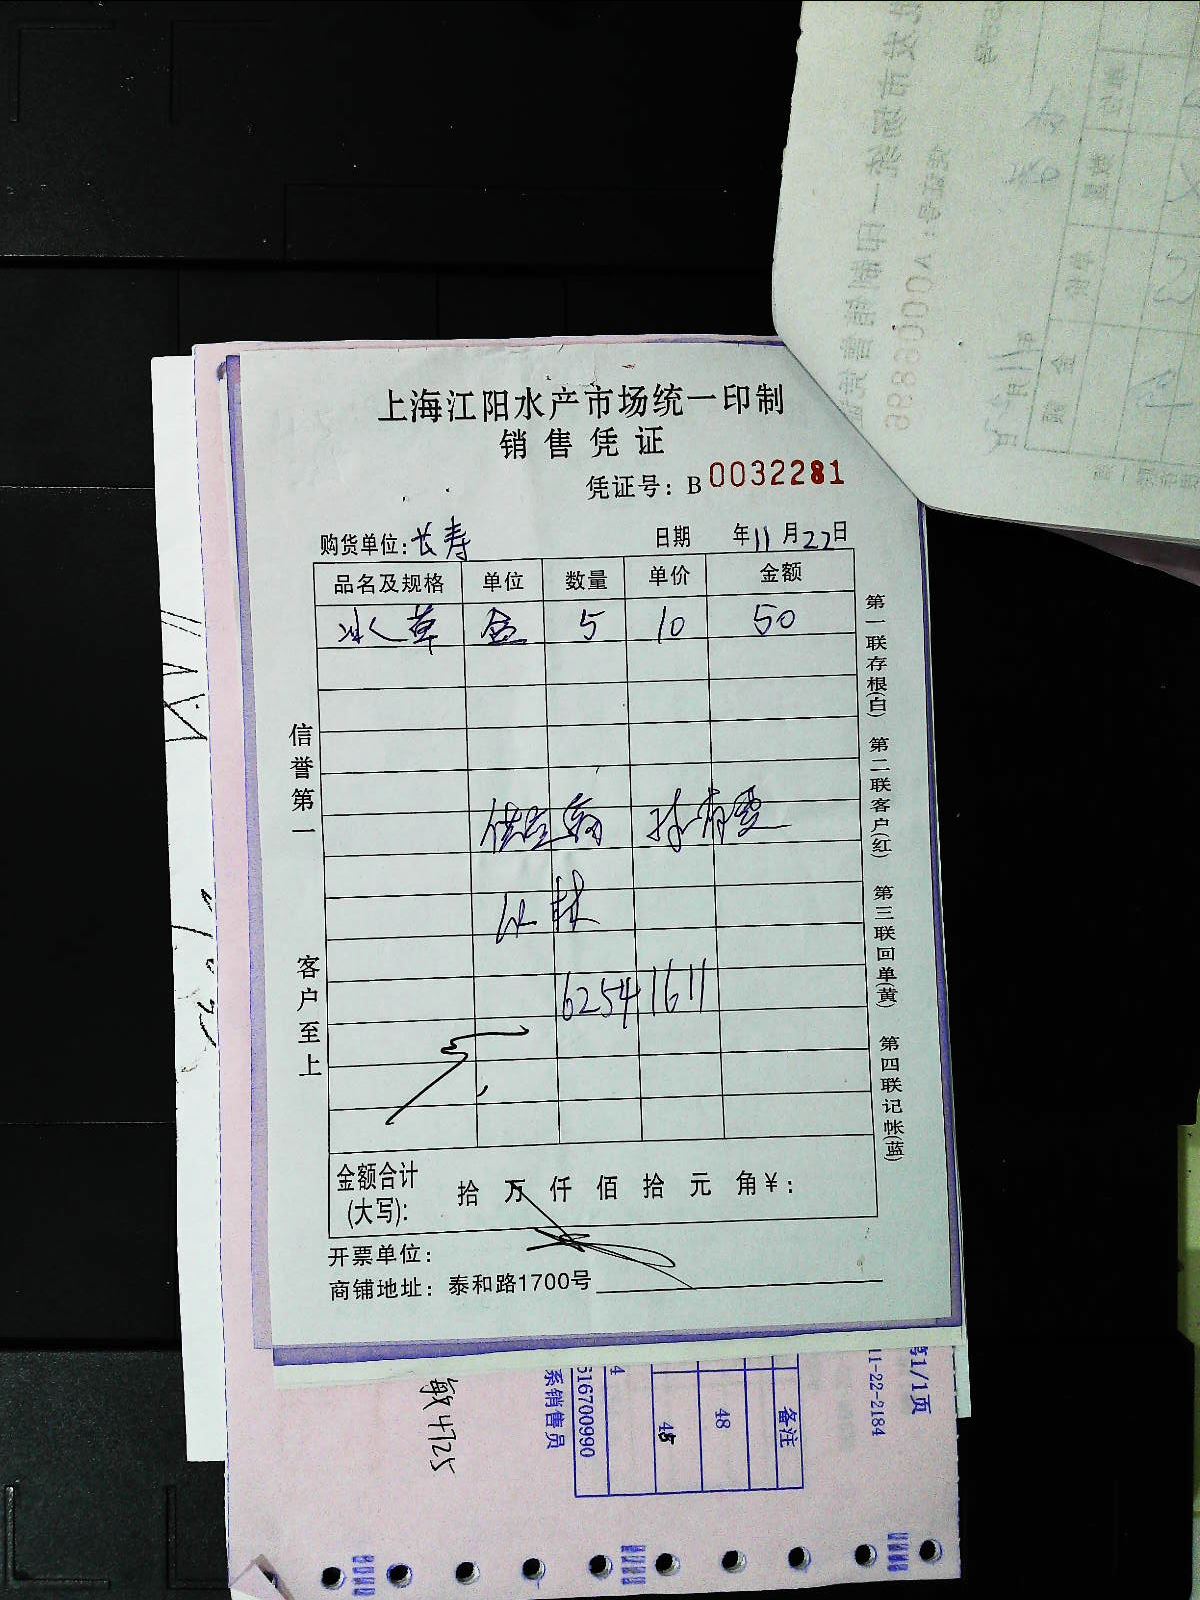 上海江阳水产市场统一印制
销售凭证
凭证号：B 0032281
购货单位：长寿 日期 年11月22日
品名及规格 单位 数量 单价 金额
冰草 盒 5 10 50
供应商 孙青雯
62541611
金额合计(大写)： 拾 万 仟 佰 拾 元 角￥：
开票单位：
商铺地址：泰和路1700号
信誉第一 客户至上
第一联存根(白) 第二联客户(红) 第三联回单(黄) 第四联记帐(蓝)
第1/1页
11-22-2184
备注
48
45
516700990
系销售员
敏4725
A0009886